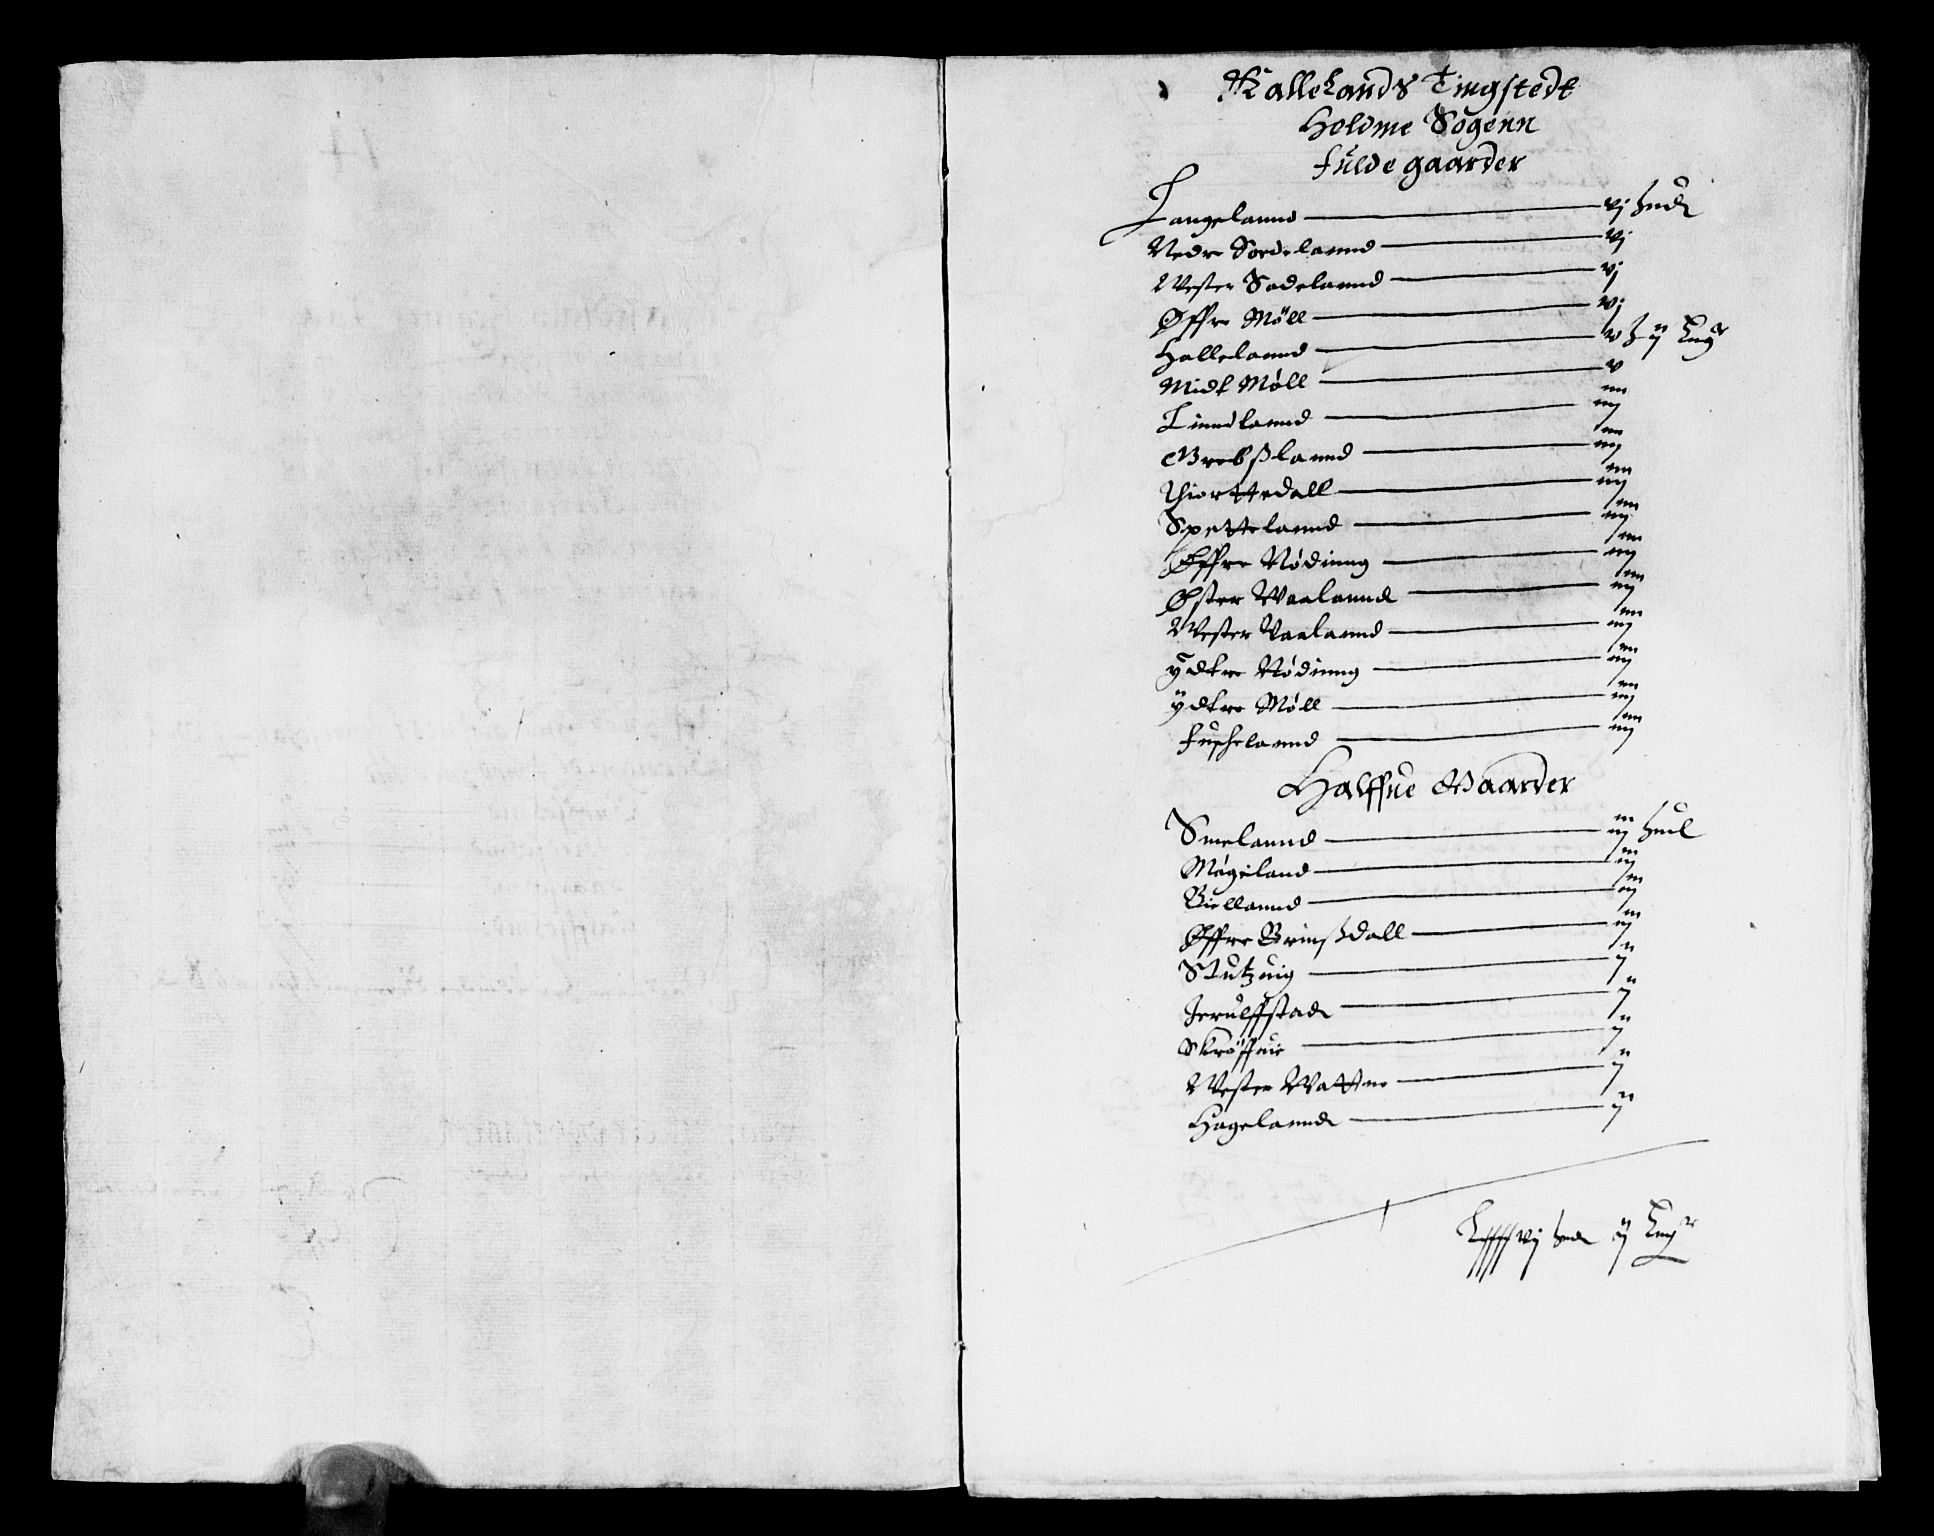 Hallelands Tingstedt
Holdme Sogenn
fulde gaarder
Langelannd — vj hude
Nedre Sordelannd — vj
Vester Sodelannd — vj
Øffre Möll — vj
Hallelannd — v h ij Eng
Midt Møll — v
Linndlannd — iiij
Grebsslannd — iiij
Thiorttedall — iiij
Spettelannd — iiij
Øffre Nødinng — iiij
Øster Waalannd — iiij
Wester Vaalannd — iiij
ÿdtre Nødinng — iiij
ÿdtre Møll — iiij
fuschelannd — iiij
Halffue Gaarder
Smelannd — iij hud
Møgeland — iij
Biellannd — iij
Øffre Brinssdall — iij
Stutzuig — ij
Jerulffstad — ij
Skröffue — ij
Wester Wattne — ij
Hagelannd — ij
Lxxxxvij hude ij Eng